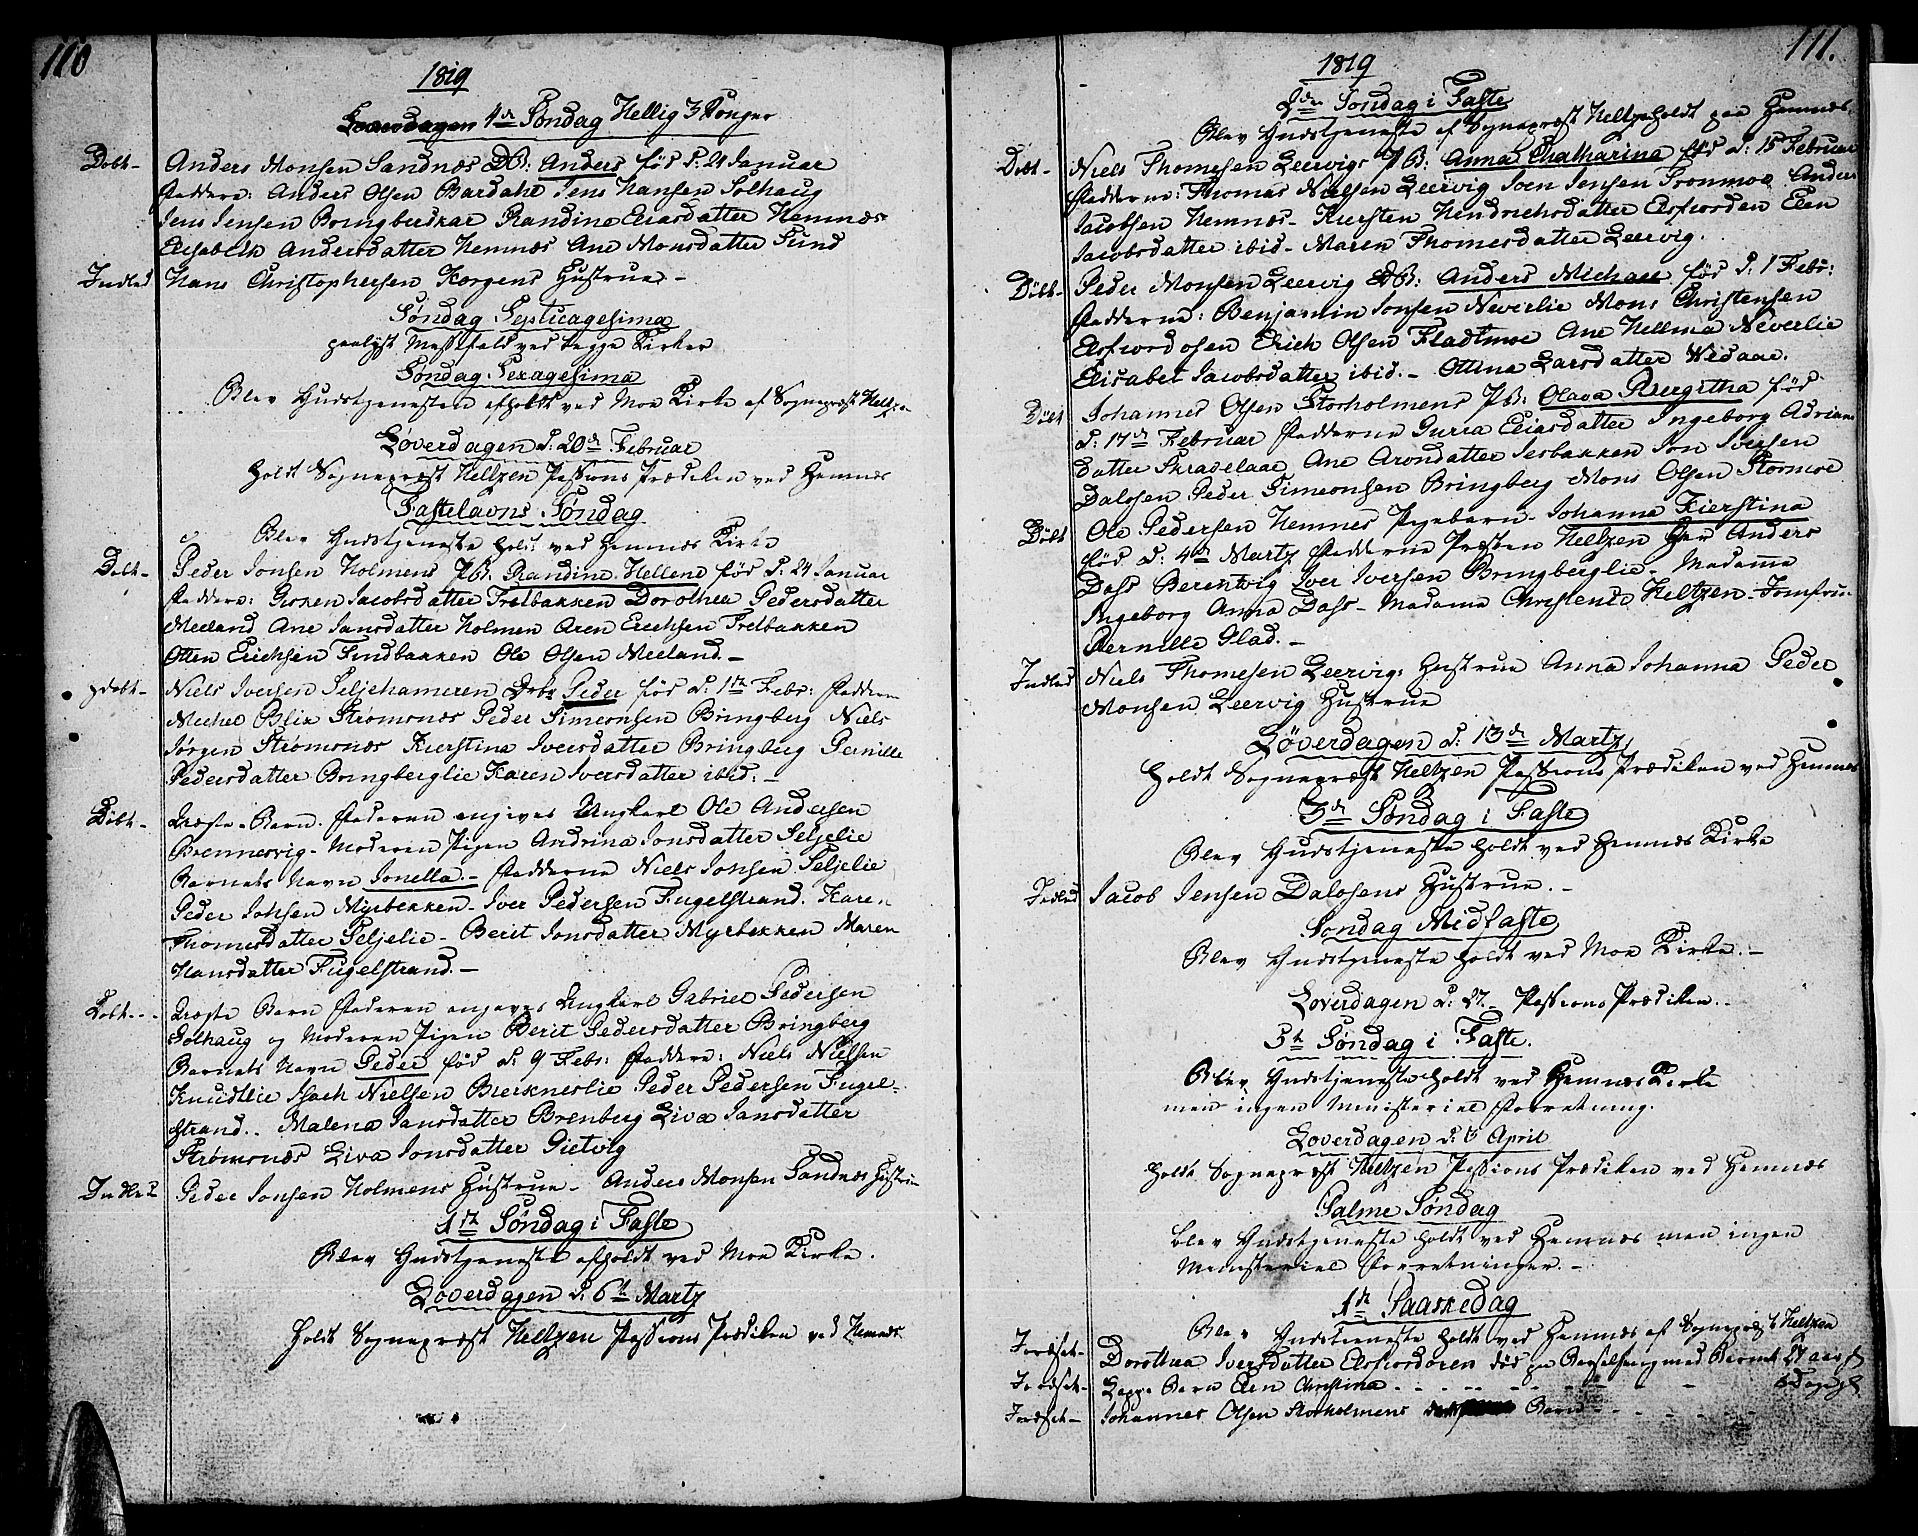 110
1819
4de Søndag Hellig 3 Konger
Døbt - Anders Monsen Sandnæs DB: Anders fød d. 24 Januar
Faddere: Anders Olsen Bardahl Jens Hansen Solhaug
Jens Jensen Bringberskar Randine Eliasdatter Hemnæs
Elisabeth Andersdatter Hemnæs Ane Monsdatter Sund
Indled Hans Christophersen Korgens Hustrue -
Søndag Septuagesima
Messefald ved begge Kirker
Søndag Sexagesima
Blev Gudstjenesten afholdt ved Moe Kirke af Sognepræst Heltzen
Løverdagen d: 20de Februar
Holdt Sognepræst Heltzen Passions Prædiken ved Hemnæs
Fastelavns Søndag
Blev Gudstjeneste holdt ved Hemnæs Kirke
Døbt - Peder Jonsen Holmens PB: Randine Hellene fød d: 24 Januar
Faddere: Jacobsdatter Fretbakken Dorothea Pedersdatter
Meeland Ane Jansdatter Holmen Aren Erichsen Fretbakken
Otten Erichsen Findbakken Ole Olsen Meeland. -
Døbt - Niels Iversen Seljehameren Peder fød d: 1te Febr: Faddere
Michel Blix Strømsnæs Peder Simeonsen Bringberg Niels
Jørgen Strømsnæs Kierstina Iversdatter Bringberg Pernille
Pedersdatter Bringberglie Karen Iversdatter ibid. -
Døbt - Uægte Barn. Faderen angives Ungkarl Ole Andersen
Brennesvig - Moderen Pigen Andrina Jonsdatter Seljelie
Barnets Navn Jonella. - Fadderne Niels Jonsen Seljelie
Peder Jonsen Myrbekken - Iver Pedersen Fugelstrand. Karen
Thomesdatter Seljelie - Berit Jonsdatter Myrbekken Maren
Hansdatter Fugelstrand. -
Døbt - Uægte Barn Faderen angives Ungkarl Gabriel Pedersen
Solhaug og Moderen Pigen Berit Pedersdatter Bringberg
Barnets Navn Peder fød d. 9 Febr: Faddere: Niels Nielsen
Knudtlie Isach Nielsen Bierkneslie Peder Pedersen Fugel-
strand.. Malena Jansdatter Brenberg Liva Jansdatter
Strømsnæs Liva Jonsdatter Gietvig
Indled Peder Jonsen Holmens Hustrue - Anders Monsen Sandnæs Hustrue
1te Søndag i Faste
Blev Gudstjeneste afholdt ved Moe Kirke.
Løverdagen d. 6te Martz
Holdt Sognepræst Heltzen Passions Prædiken ved Hemnæs
111.
1819
2den Søndag i Faste
Blev Gudstjeneste af Sognepræst Heltzen holdt paa Hemnæs.
Døbt - Niels Thomesen Leervigs PB: Anna Chatharina fød d: 15 Februar
Fadderne: Thomas Nielsen Leervig Sven Jensen Anders
Jacobsen Hemnæs - Kiersten Hendrichsdatter Elsfiorden Elen
Jacobsdatter ibid - Maren Thomesdatter Leervig.
Døbt - Peder Monsen Leervig DB: Anders Michael fød d. 1 Febr:
Fadderne: Benjamin Jonsen Neverlie Mons Christensen
Elsfiordosen Erich Olsen Fladtmoe Ane Hellma Neverlie
Elisabet Jacobsdatter ibid. - Ottina Larsdatter Wedaae.
Døbt Johannes Olsen Storholmens PB: Olava Bergitha fød
d: 17de Februar Fadderne Guria Eliasdatter Ingeborg Adrians
datter Ane Arondatter Jon Iversen
Dalosen Peder Simeonsen Bringberg Mons Olsen Stormoe
Døbt Ole Pedersen Hemnes Pigebarn - Johanna Kierstina
fød d: 4de Martz Fadderne Præsten Heltzen Hr Anders
Dass Berentvig Iver Iversen Bringberglie - Madame
Ingeborg Anna Dass - Madame Christence Heltzen - Jomfrue
Pernille Glad. -
Indled Niels Thomesen Leervigs Hustrue Anna Johanna Peder
Monsen Leervig Hustrue
Løverdagen d. 13de Martz
Holdt Sognepræst Heltzen Passions Prædiken ved Hemnes
3de Søndag i Faste
Blev Gudstjeneste holdt ved Hemnæs Kirke
Indled Jacob Jensen Dalosens Hustrue. -
Søndag Midfaste
Blev Gudstjeneste holdt ved Moe Kirke. -
Løverdagen d. 27. - Passions Prædiken. -
5te Søndag i Faste.
Blev Gudstjeneste holdt ved Hemnæs Kirke
men ingen Ministeriel Forretning.
Løverdagen d. 3 April
Holdt Sognepræst Heltzen Passions Prædiken ved Hemnæs
Palme Søndag
blev Gudstjeneste holdt ved Hemnæs men ingen
Ministeriel Forretninger. -
1te Paaskedag
Blev Gudstjeneste holdt ved Hemnæs af Sognepræst Heltzen
Jordset - Dorothea Iversdatter Elsfiordosen død paa Barselseng med Barnet 27 aar gl
Jordset - Lappe Barn Elen Christina - - - - 6 Dage gl
Jordset - Johannes Olsen Storholmens Barn - - - -